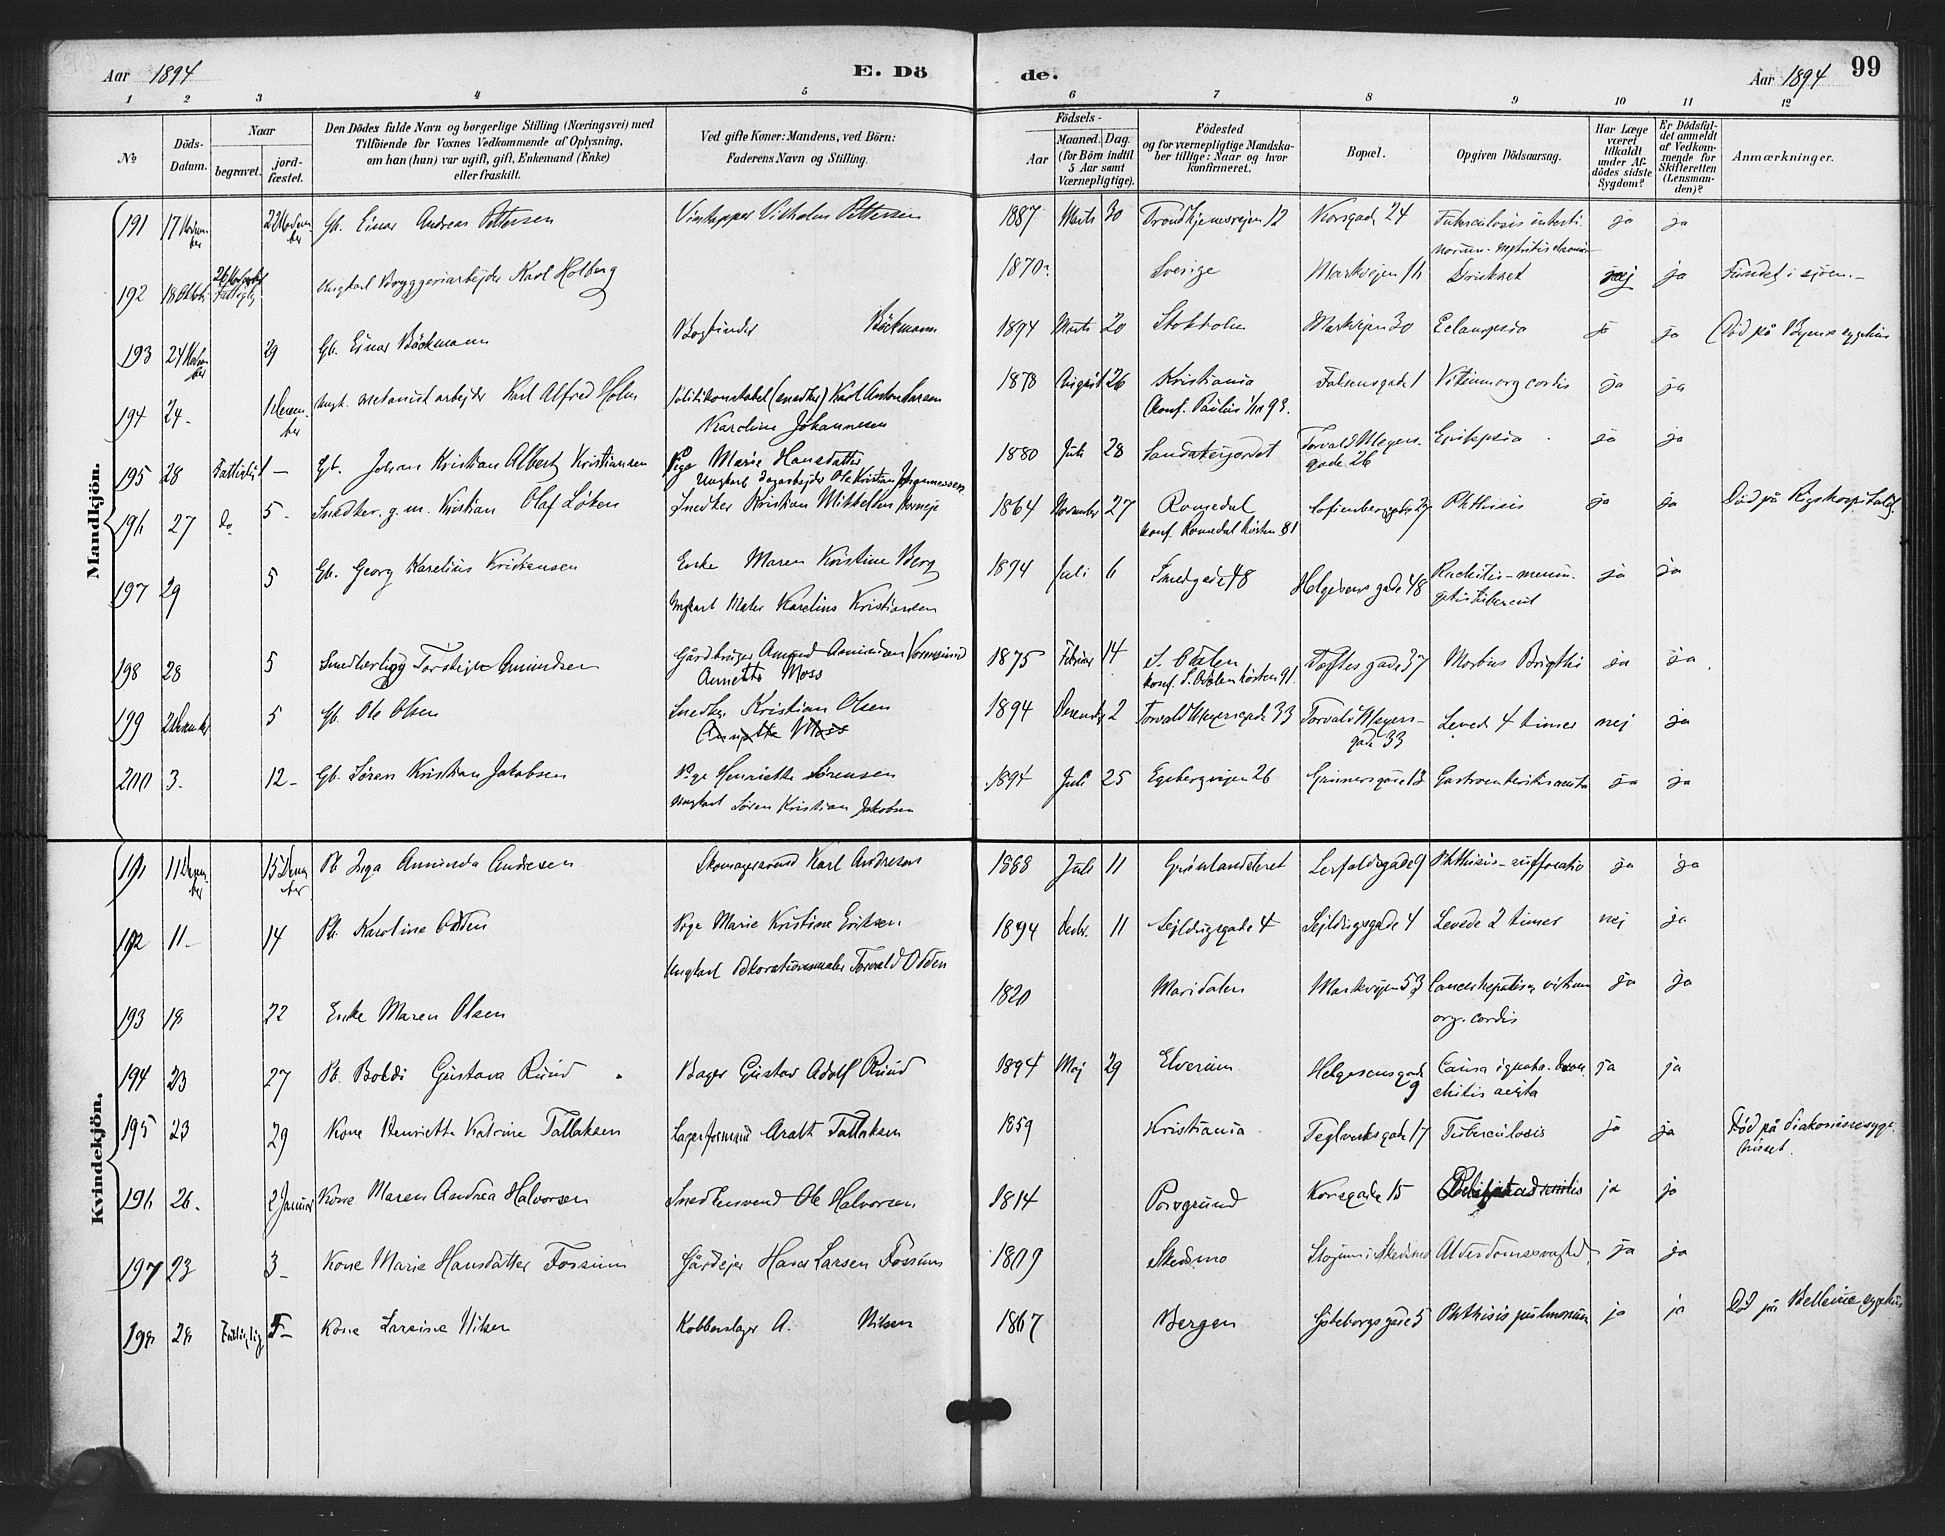 Aar 1894
E. Dö
de.
Aar 1894
99
1 2 3 4 5 6 7 8 9 10 11 12
№
Döds-
Datum.
Naar
begravet.
jord-
fæstet.
Den Dödes fulde Navn og borgerlige Stilling (Næringsvei) med
Tilföiende for Voxnes Vedkommende af Oplysning,
om han (hun) var ugift, gift, Enkemand (Enke)
eller fraskilt.
Ved gifte Koner: Mandens, ved Börn:
Faderens Navn og Stilling.
Födsels-
Aar
Maaned. Dag.
(for Börn indtil
5 Aar samt
Værnepligtige).
Födested
og for værnepligtige Mandska-
ber tillige: Naar og hvor
konfirmeret.
Bopæl.
Opgiven Dödsaarsag.
Har Læge
været
tilkaldt
under Af-
dödes sidste
Sygdom?
Er Dödsful-
det anmeldt
af Vedkom-
mende for
Skifteretten
(Lensman-
den)?
Anmærkninger.
Mandkjön.
191 17 Gb. Einar Andreas Pettersen Vilhelm Pettersen 1887 Marts 30 Trondhjemsvejen 12 Korsgade 24 Tuberculosis ja ja
192 18 Oktob. Ungkarl Bryggeriarbejder Karl Holberg 1870 Sverige Markvejen Druknet nej ja Fundet i sjøen
193 24 29 Gb. Einar Bäckmann Bogbinder Bäckmann 1894 Marts 20 Stokholm Markvejen 30 Eclampsia ja ja Død på sygehus
194 24 - Karl Alfred Holm Politikonstabel (snedker) Karl Anton Larsen
Karoline Johannesen
1878 August 26 Kristiania
konf. Paulus 93. Falsensgade 1 Vitium org cordis ja ja
195 28 1 - Gb. Johan Kristian Albert Kristiansen Pige Marie Hansdatter
Ungkarl Dagarbejder Ole Kristian Johannessen
1880 Juli 28 Sandakerjordet Torvald Meyers
gade 26 Epilepsia ja ja
196 27 Do 5 - Snedker, g.m. Kristian Olaf Løken Snedker Kristian Mikkelsen
1864 November 27 Romedal
konf. Romedal høsten 81 Sofienberggade 27 Phthisis ja ja Død på Rigshospitalet
197 29 5 Gb. Georg Karelius Kristiansen Enke Maren Kristine Berg
Ungkarl Maler Karelius Kristiansen
1874 Juli 6 Smedgade 48 Helgesens gade 48 Rachitis - menin-
gitis tubercul ja ja
198 28 5 Torstejn Amundsen Gårdbruger Amund Amundsen
Annette Moss
1875 Februar 14 S. Odalen
konf. S. Odalen høsten 91. Toftes gade 37 Morbus Brigthi ja ja
199 2 December 5 Gb. Ole Olsen Snedker Kristian Olsen
Annette Moss
1894 Decemb 2 Torvald Meyersgade 33 Torvald Meyers-
gade 33 Levede 4 timer nej ja
200 3 - 12 - Gb. Søren Kristian Jakobsen Pige Henriette Sørensen
Ungkarl Søren Kristian Jakobsen
1894 Juli 25 Egebergvejen 26 Grünersgade 13 Gastroenteritis acuta ja ja
Kvindekjön.
191 11 Decem-
ber 15 Decem-
ber Pb. Inga Amunda Andresen Skomagersvend Karl Andresen 1888 Juli 11 Grønlandsleret Lerfaldsgade 9 Phthisis - suffocatio ja ja
192 11 - 14 Pb. Karoline Odden Pige Marie Kristine Eriksen
Ungkarl Dekorationsmaler Torvald Odden
1894 Decbr. 11 Sejldugsgade 4 Sejldugsgade 4 Levede 2 timer nej ja
193 18 22 Enke Maren Olsen 1820 Maridalen Markvejen 53 Cancer hepatis vitium
org. cordis ja ja
194 23 27 Pb. Gustava Ruud Bager Gustav Adolf Ruud 1894 Maj 29 Elverum Helgesensgade
9 Causa ignota. Bron-
chitis acuta ja ja
195 23 29 Kone Henriette Katrine Tallaksen Lagerformand Tallaksen 1859 Kristiania Teglverksgade 17 Tuberculosis ja ja Død på diakonissesyge-
huset.
196 26. 2 Januar Kone Maren Andrea Halvorsen Snedkersvend Ole Halvorsen 1814 Porsgrund Korsgade 15 ja ja
197 23 3 - Kone Marie Hansdatter Fossum Gårdejer Hans Larsen Fossum 1809 Skedsmo i Skedsmo Alderdomssvaghed ja ja
198 28 5 - Kone Larsine Nilsen Kobberslager A. Nilsen 1867 Bergen Gøteborgsgade 5 Phthisis pulmonum ja ja Død på sygehus